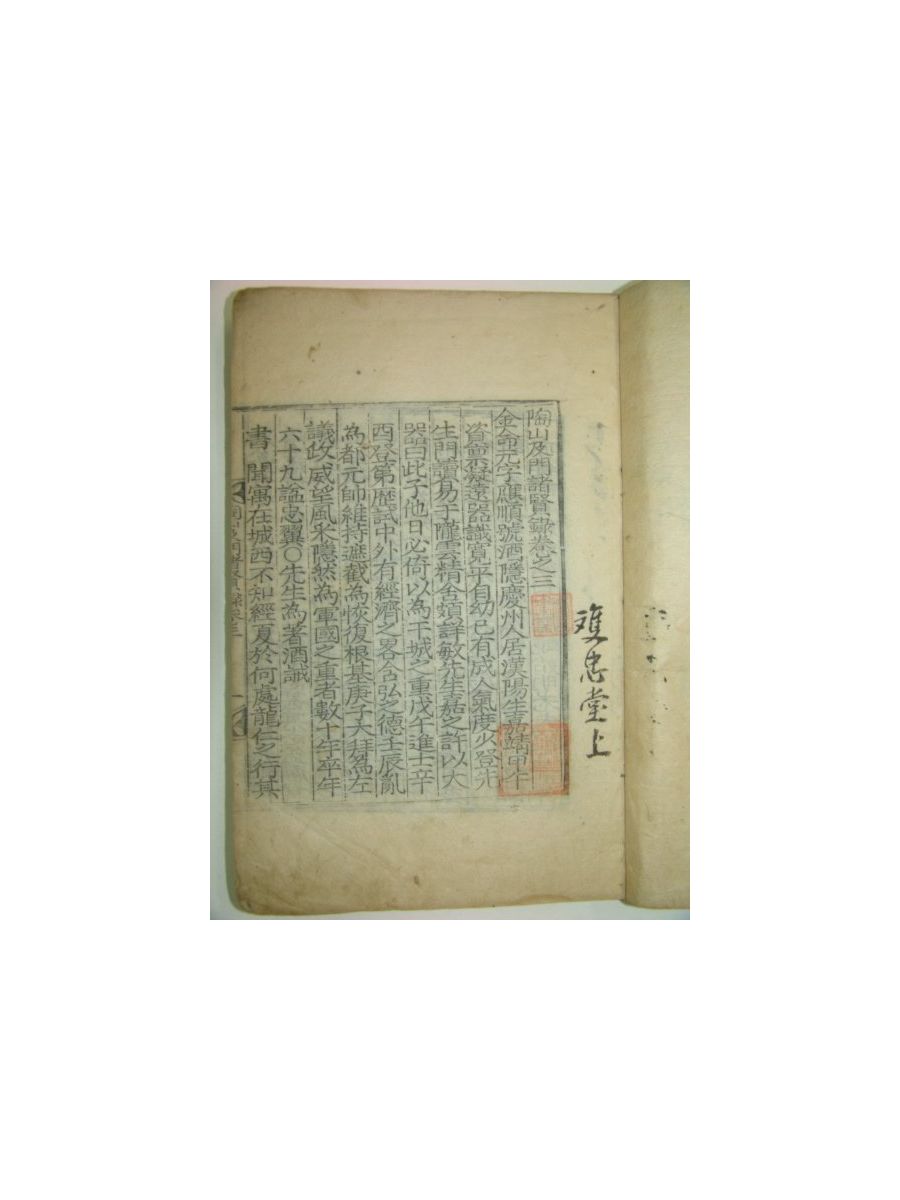 雙忠堂上
陶山及門諸賢錄卷之三
金命元字應順號酒隱慶州人居漢陽生嘉靖甲午
資稟凝遠器識寬平自幼已有成人氣度少登先
生門讀易于隴雲精舍頗詳敏先生嘉之許以大
器曰此子他日必倚以為干城之重戊午進士辛
酉登第歷試中外有經濟之畧含弘之德壬辰亂
為都元帥維持遮截為恢復根基庚子大拜為左
議政威望風采隱然為軍國之重者數十年卒年
六十九諡忠翼○先生為著酒誡
書 聞寓在城西不知經夏於何處龍仁之行其